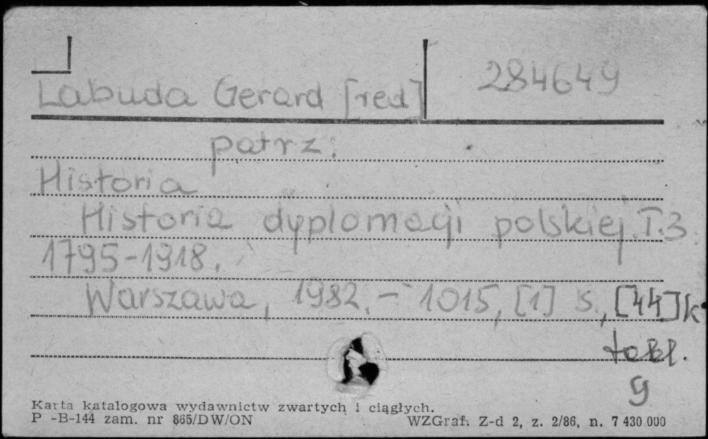 Labuda Gerard [red]
284649
patrz:
Historia
Historia dyplomacji polskiej. T.3
1795-1918.
Warszawa, 1982. - 1015, [1] s., [44] k
tabl.
9
Karta katalogowa wydawnictw zwartych i ciągłych.
P -B-144 zam. nr 865/DW/ON
WZGraf. Z-d 2, z. 2/86, n. 7 430 000